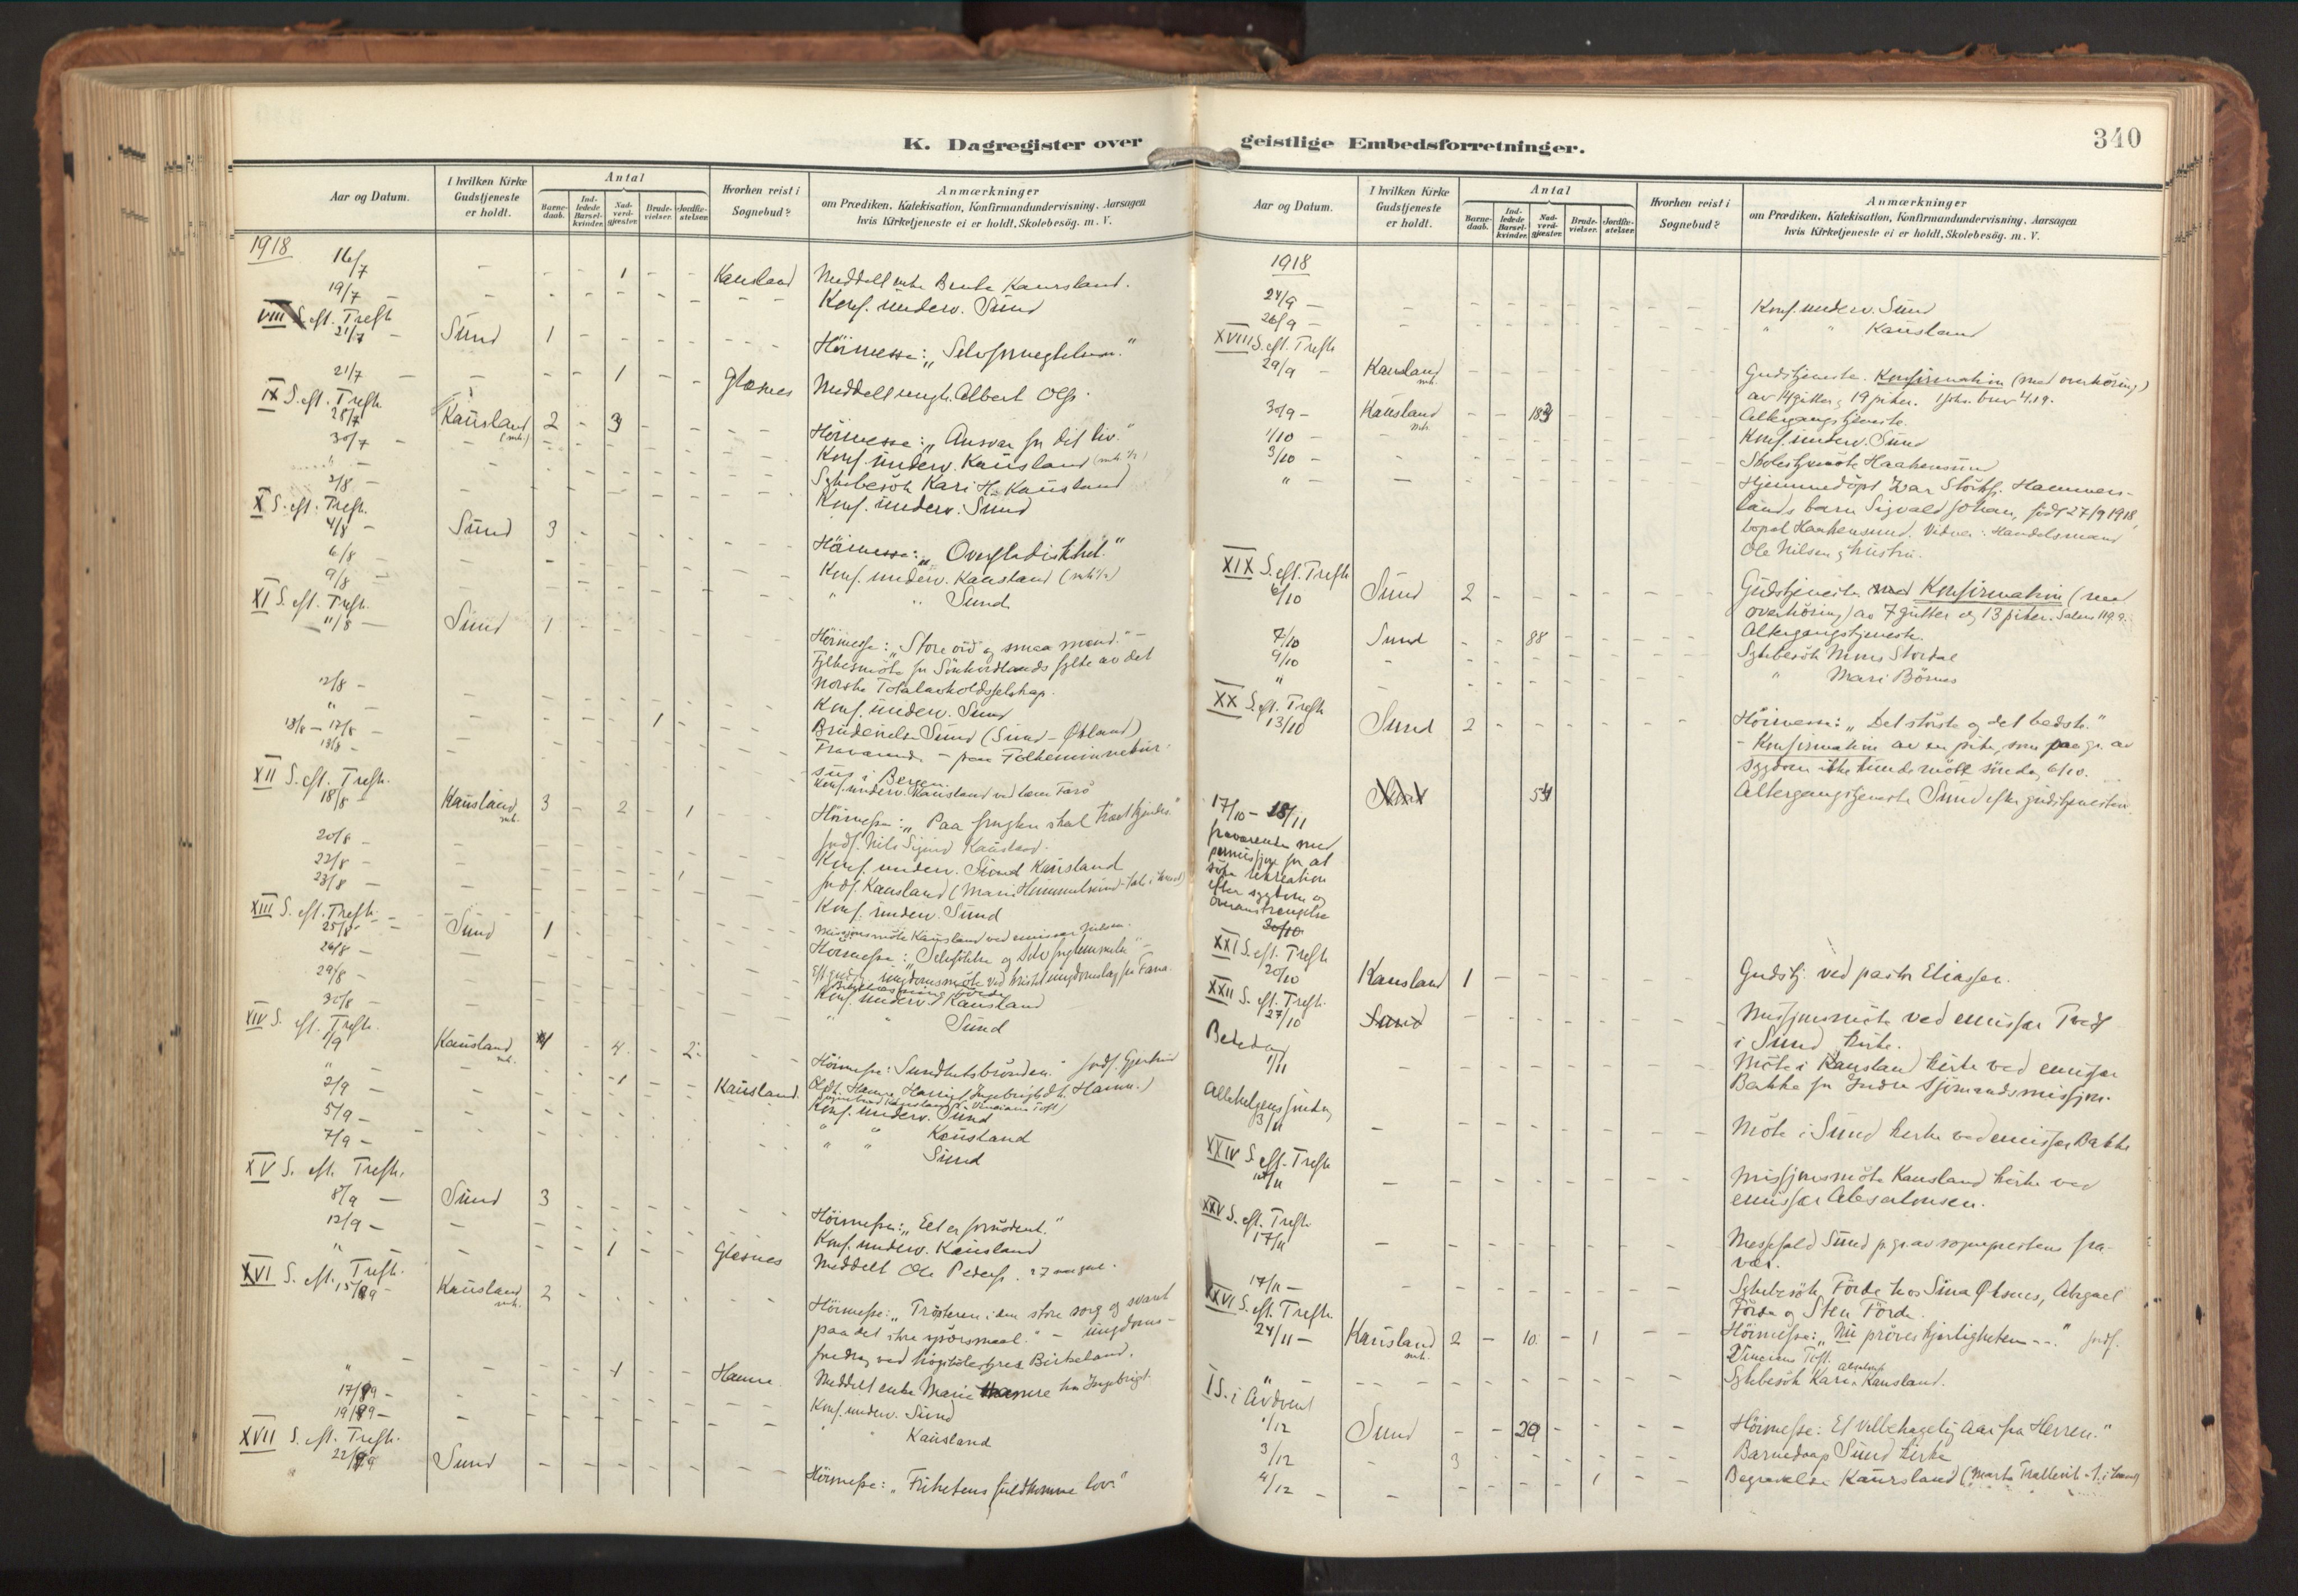 K. Dagregister over
Aar og Datum.
I hvilken Kirke Gudstjeneste er holdt.
Antal
Barne-daab.
Ind-ledede Barsel-kvinder.
Nad-verd-gjester.
Brude-vielser.
Jordfæ-stelser.
Hvorhen reist i Sognebud?
Anmærkninger
om Prædiken, Katekisation, Konfirmandundervisning, Aarsagen
hvis Kirketjeneste ei er holdt, Skolebesög, m. V.
1918
16/7 - - - 1 - - Kausland Meddelt enke Kausland.
19/7 - - Konf. underv. Sund
VIII S. eft. Trefh.
21/7 - Sund 1 Höimesse: "
21/7 - - 1 - - Glesnes Meddelt ungk. Albert Ols.
IX S. eft. Trefh.
28/7 Kausland 2 - 3 Höimesse: "Ansvar for dit liv."
30/7 - Konf. underv. Kausland
" - Sykebesök Kari H. Kausland
2/8 - Konf. underv. Sund
X S. eft. Trefh.
4/8 - Sund 3 Höimesse: "Overfladiskhet."
6/8 - Konf. underv. Kausland
9/8 - " " Sund
XI S. eft. Trefh.
11/8 - Sund 1 Höimesse: "Store ord og smaa mænd." -
Fylkesmöte for Sönhordlands fylke av det
Norske Totalavholdsselskap.
12/8 - Konf. underv. Sund
" - 1 Brudevielse Sund (Sund - Økland)
13/8 - 17/8 Fraværende - paa
sus i Bergen.
Konf. underv. Kausland ved
XII S. eft. Trefh.
18/8 - Kausland 3 - 2 - 1 Höimesse: "Paa frugten skal træet kjendes."
Jordf. Nils Kausland.
20/8 - Konf. underv. Sund Kausland
22/8 - 1 Jordf. Kausland
23/8 - Konf. underv. Sund
XIII S. eft. Trefh.
25/8 - Sund 1
Missjonsmöte Kausland ved emissær Nilsen.
Höimesse: "
26/8 -
29/8 - Konf. underv. Kausland
30/8 - " " Sund
XIV S. eft. Trefh.
1/9 Kausland 4 - 4 - 2 Höimesse: "Sundhetsbrönden." Jordf.
" - - 1 - - Kausland
2/9 - Konf. underv. Sund
5/9 - " " Kausland
7/9 - " " Sund
XV S. eft. Trefh.
8/9 - Sund 3 Höimesse: "Eet er fornödent."
12/9 - Konf. underv. Kausland
" - 1 - - Glesnes Meddelt Ole Peders.
XVI S. eft. Trefh.
15/9 - Kausland 2 Höimesse: "Trösteren i den store sorg og svaret
paa det store spörsmaal." - ungdoms-
foredrag ved Birkeland.
" - 1 - - Hamre Meddelt enke Marie Hamre
17/9 - Konf. underv. Sund
19/9 - " " Kausland
XVII S. eft. Trefh.
22/9 Sund Höimesse: "Frihetens fuldkomne lov."
geistlige Embedsforretninger.
340
Aar og Datum.
I hvilken Kirke Gudstjeneste er holdt.
Antal
Barne-daab.
Ind-ledede Barsel-kvinder.
Nad-verd-gjester.
Brude-vielser.
Jordfæ-stelser.
Hvorhen reist i Sognebud?
Anmærkninger
om Prædiken, Katekisation, Konfirmandundervisning, Aarsagen
hvis Kirketjeneste ei er holdt, Skolebesög, m. V.
1918
24/9 - Konf. underv. Sund
26/9 - " " Kausland
XVIII S. eft. Trefh.
29/9 - Kausland Gudstjeneste. Konfirmation (med overhöring)
av 14 gutter og 19 piker. 1 Joh. brev 4.19.
30/9 - Kausland Altergangstjeneste.
1/10 - Konf. underv. Sund
3/10 - Haakensund
" - Hjemmedöpt Ivar Hammers-
lands barn Sigvald Johan, född 27/9 1918,
bopæl Haakensund. Vidner: Handelsmand
Ole Nilsen og hustru.
XIX S. eft. Trefh.
6/10 Sund 2 Gudstjeneste med Konfirmation (med
overhöring) av 7 gutter og 13 piker. Salme 119.9.
7/10 Sund 88 Altergangstjeneste.
9/10 - Sykebesök Stordal
" - " Mari Börnes
XX S. eft. Trefh.
13/10 Sund 2 Höimesse: "Det störste og det bedste."
- Konfirmation av en pike, som paa gr. av
sygdom ikke kunde möte söndag 6/10.
Altergangstjeneste Sund efter gudstjenesten.
17/10 - 18/11
fraværende med
permissjon for at
söke rekreation
efter sygdom og
overanstrengelse
XXI S. eft. Trefh.
20/10 Kausland 1 Gudstj. ved pastor Eliassen.
XXII S. eft. Trefh.
27/10 Sund Missjonsmöte ved emissær
i Sund kirke.
Bededag
1/11 Möte i Kausland kirke ved emissær
Bakke for Indre Sjömandsmissjon.
Allehelgenssöndag
3/11 - Möte i Sund kirke ved emissær Bakke
XXIV S. eft. Trefh.
10/11 - Missjonsmöte Kausland kirke ved
emissær Absalonsen.
XXV S. eft. Trefh.
17/11 - Messefald Sund p. gr. av sogneprestens fra-
vær.
17/11 - Sykebesök Förde hos Sina Øksnes, Abigael
Förde og Sten Förde.
XXVI S. eft. Trefh.
24/11 - Kausland 2 - 10 - 1 Höimesse: "Nu pröves kjærligheten - - ." Jordf.
Toft.
" Sykebesök Kari Kausland.
I S. i Advent
1/12 Sund - - 29 Höimesse: Et velbehagelig aar fra Herren."
3/12 - 3 Barnedaap Sund kirke
4/12 - - 1 Begravelse Kausland